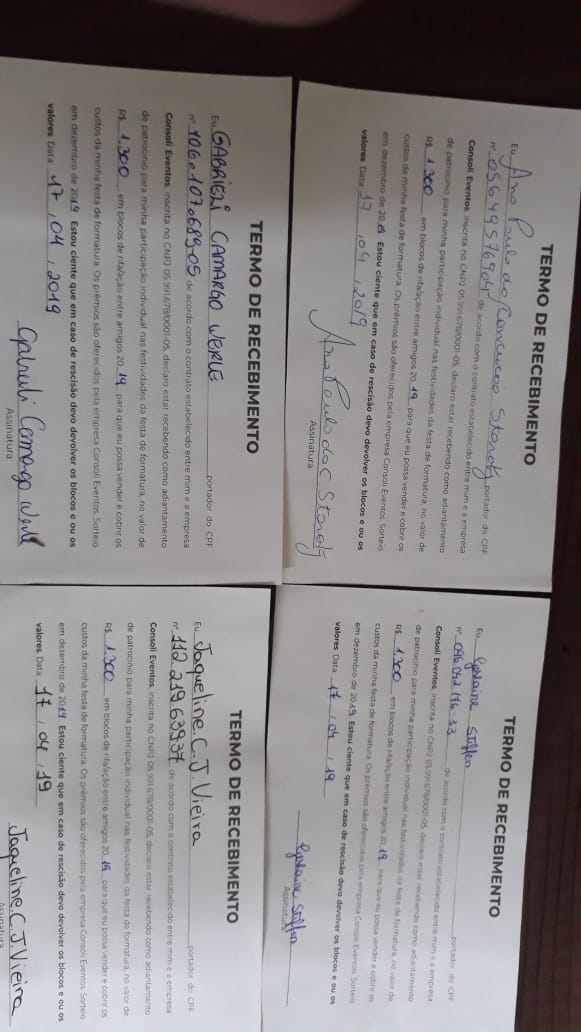 TERMO DE RECEBIMENTO
Eu Gabrieli Camargo Werle portador do CPF
nº 106.107.689-05 de acordo com o contrato estabelecido entre mim e a empresa
Consoli Eventos, inscrita no CNPJ 05.991.678/0001-05, declaro estar recebendo como adiantamento
de patrocínio para minha participação individual nas festividades da festa de formatura, no valor de
R$ 1.300 em blocos de rifa/ação entre amigos 2019 para que eu possa vender e cobrir os
custos da minha festa de formatura. Os prêmios são oferecidos pela empresa Consoli Eventos. Sorteio
em dezembro de 2019. Estou ciente que em caso de rescisão devo devolver os blocos e ou os
valores. Data: 17, 04, 2019
Gabrieli Camargo Werle
Assinatura
TERMO DE RECEBIMENTO
Eu Ana Paula da Storatz portador do CPF
nº de acordo com o contrato estabelecido entre mim e a empresa
Consoli Eventos, inscrita no CNPJ 05.991.678/0001-05, declaro estar recebendo como adiantamento
de patrocínio para minha participação individual nas festividades da festa de formatura, no valor de
R$ 1.300 em blocos de rifa/ação entre amigos 2019 para que eu possa vender e cobrir os
custos da minha festa de formatura. Os prêmios são oferecidos pela empresa Consoli Eventos. Sorteio
em dezembro de 2019. Estou ciente que em caso de rescisão devo devolver os blocos e ou os
valores. Data: 17, 04, 2019
Ana Paula da C Storatz
Assinatura
TERMO DE RECEBIMENTO
Eu Jaqueline C. J. Vieira portador do CPF
nº 112.219.639.37 de acordo com o contrato estabelecido entre mim e a empresa
Consoli Eventos, inscrita no CNPJ 05.991.678/0001-05, declaro estar recebendo como adiantamento
de patrocínio para minha participação individual nas festividades da festa de formatura, no valor de
R$ 1.300 em blocos de rifa/ação entre amigos 2019 para que eu possa vender e cobrir os
custos da minha festa de formatura. Os prêmios são oferecidos pela empresa Consoli Eventos. Sorteio
em dezembro de 2019. Estou ciente que em caso de rescisão devo devolver os blocos e ou os
valores. Data: 17, 04, 19
Jaqueline C J Vieira
Assinatura
TERMO DE RECEBIMENTO
Eu Gislaine Stoffen portador do CPF
nº 096.042.176-33 de acordo com o contrato estabelecido entre mim e a empresa
Consoli Eventos, inscrita no CNPJ 05.991.678/0001-05, declaro estar recebendo como adiantamento
de patrocínio para minha participação individual nas festividades da festa de formatura, no valor de
R$ 1.300 em blocos de rifa/ação entre amigos 2019 para que eu possa vender e cobrir os
custos da minha festa de formatura. Os prêmios são oferecidos pela empresa Consoli Eventos. Sorteio
em dezembro de 2019. Estou ciente que em caso de rescisão devo devolver os blocos e ou os
valores. Data: 17, 04, 19
Gislaine Stoffen
Assinatura